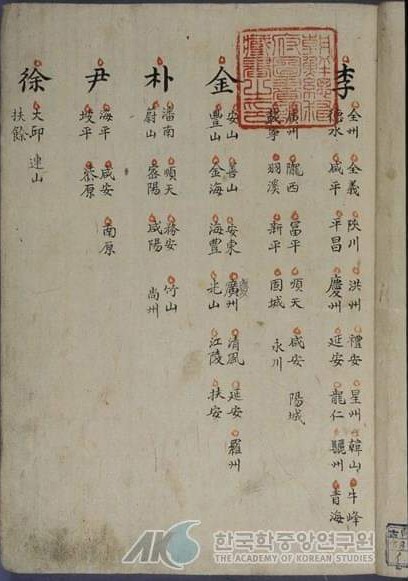 李
全州 全義 陜川 洪州 禮安 星州 韓山 牛峰
德水 咸平 平昌 慶州 延安 龍仁 驪州 青海
州 隴西 富平 順天 咸安 陽城
寧 羽溪 新平 固城 永川
金
安山 善山 安東 廣州 清風 延安 羅州
豐山 金海 海豐 光山 江陵 扶安
朴
潘南 順天 務安 竹山
蔚山 密陽 咸陽 尚州
尹
海平 咸安 南原
坡平 原
徐
大邱 連山
扶餘
AKS 한국학중앙연구원
THE ACADEMY OF KOREAN STUDIES